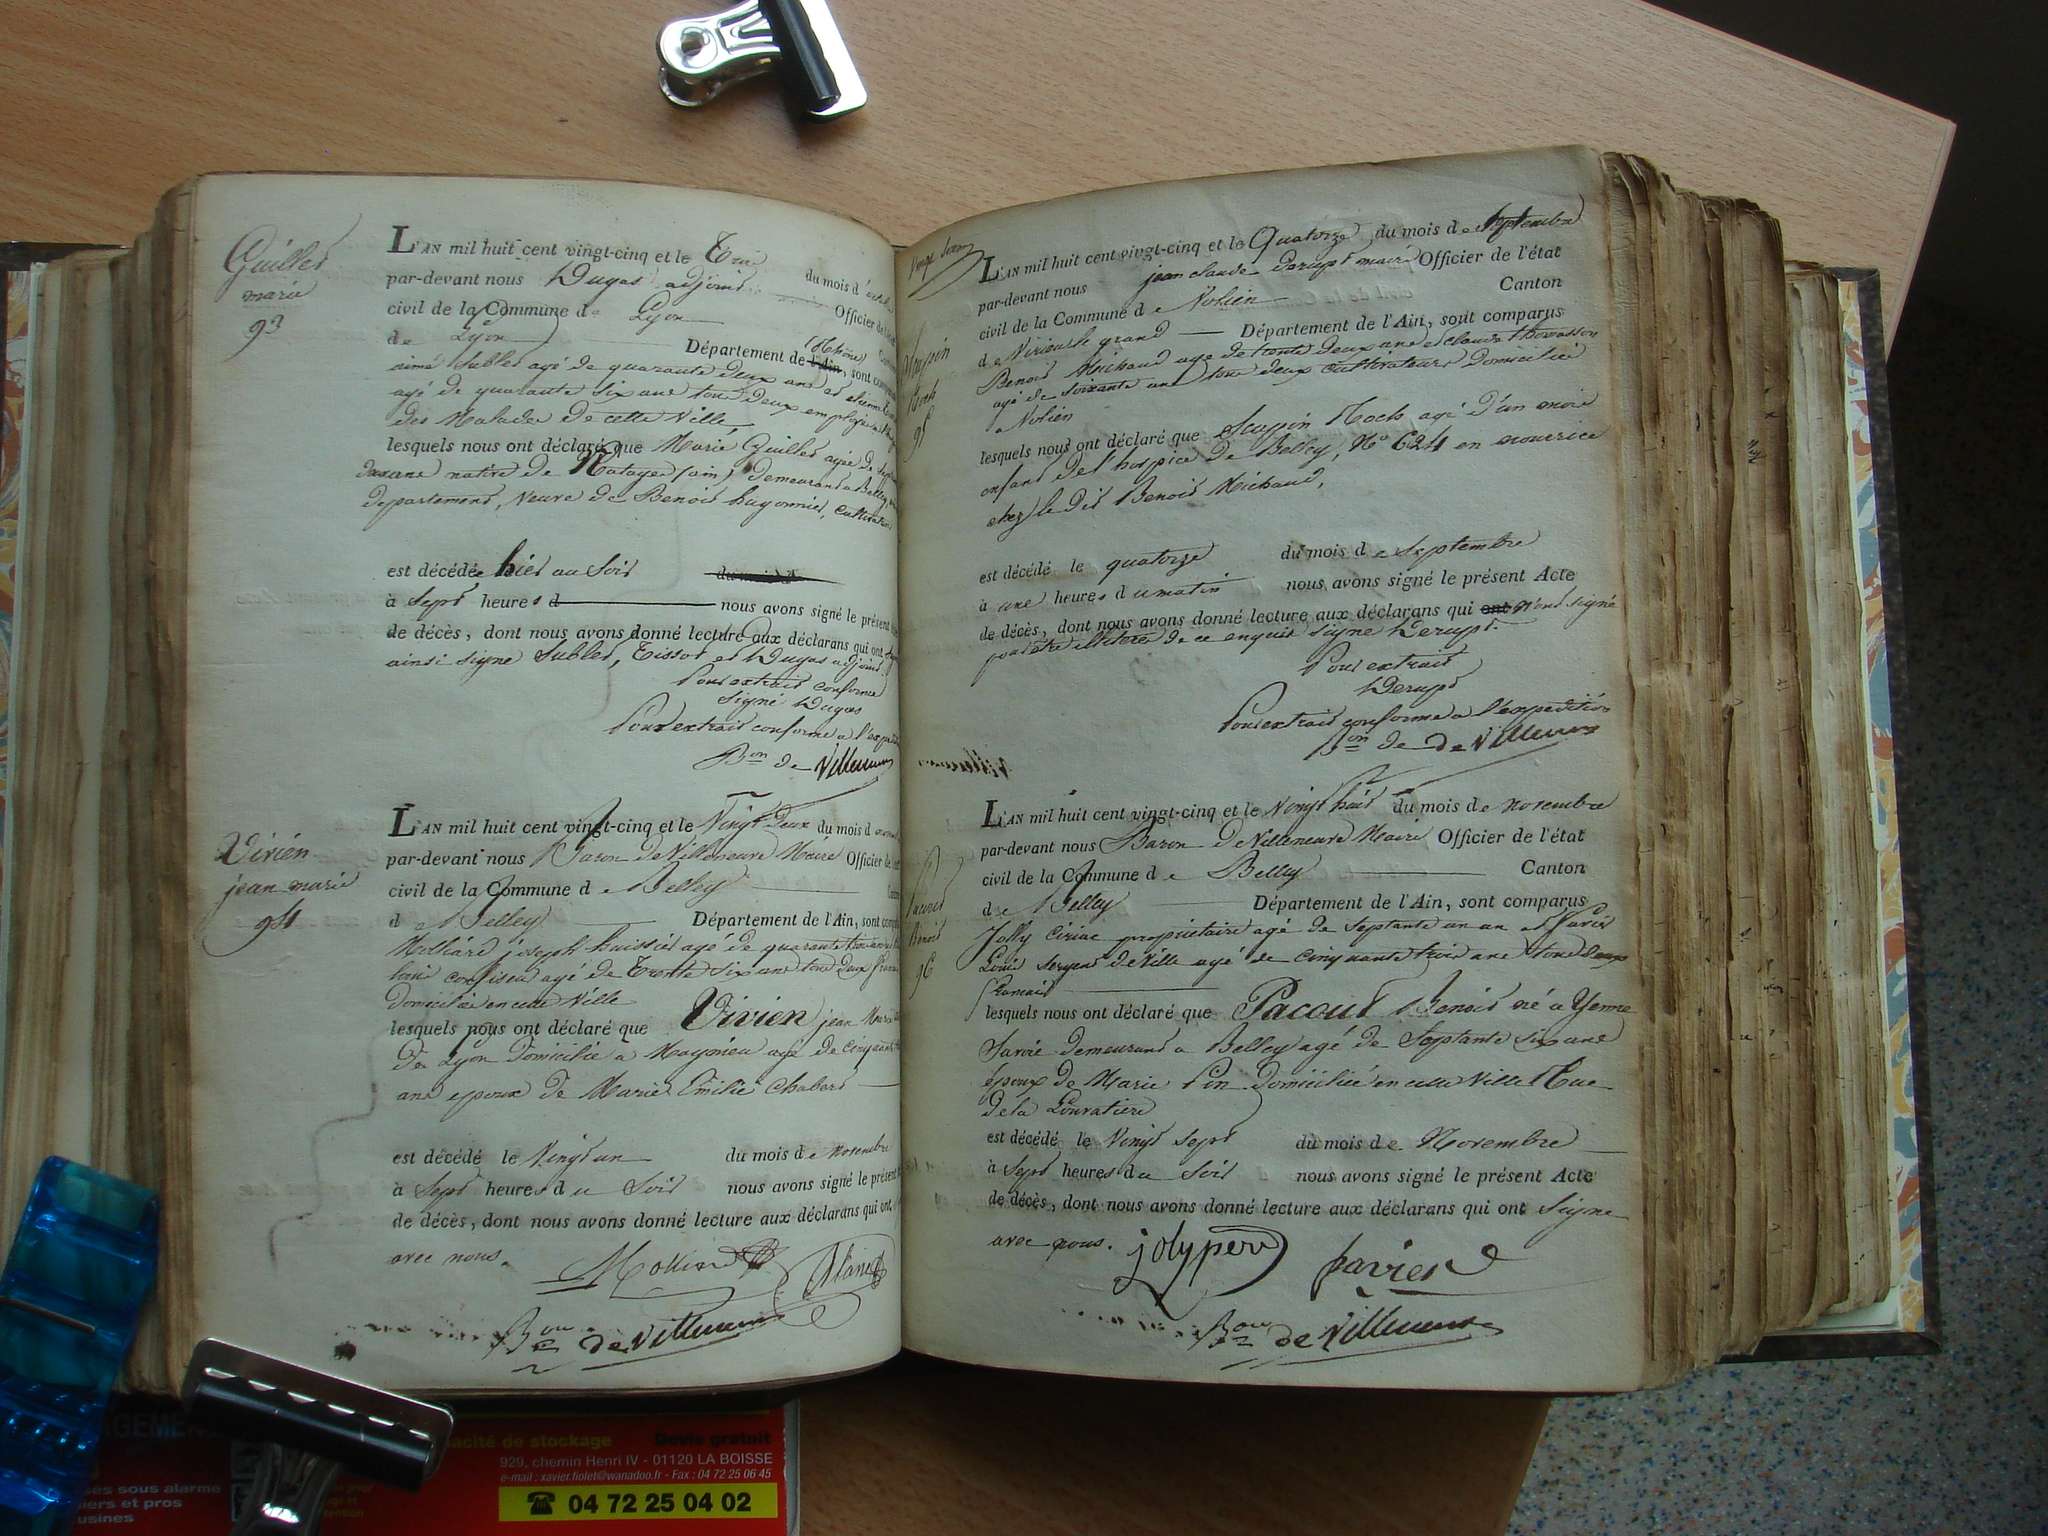 Guillet
marie
93
L'AN mil huit cent vingt-cinq et le
par-devant nous Dugas adjoint du mois d'
civil de la Commune de Lyon Officier de l'
de Lyon (Rhône)
Département de l'Ain, sont
aimé Sublet agé de quarante deux ans et etienne
agé de quarante six ans tous deux employés
des Malades de cette Ville
lesquels nous ont déclaré que Marie Guillet agée de
native de (ain) demeurant a Belley
departement, Veuve de Benoit huyonnier, Cultivateur
est décédée hier au Soir du mois d
à Sept heures d nous avons signé le présent
de décès, dont nous avons donné lecture aux déclarans qui ont
ainsi signé Sublet, Tissot et Dugas adjoint
Pour extrait conforme
Signé Dugas
Pour extrait conforme a l'expédition
Bon de Villeneuve
Vivien
jean marie
94
L'AN mil huit cent vingt-cinq et le Vingt Deux du mois de
par-devant nous Baron de Villeneuve Maire Officier de
civil de la Commune de Belley
de Belley Département de l'Ain, sont
joseph huissier agé de quarante trois ans
confiseur agé de Trente Six ans tous Deux
Domiciliés en cette Ville
lesquels nous ont déclaré que Vivien jean Marie
De Lyon Domicilié a agé de Cinquante
ans epoux de Marie Emilie Chabert
est décédé le Vingt un du mois de novembre
à Sept heures du Soir nous avons signé le présent
de décès, dont nous avons donné lecture aux déclarans qui ont
avec nous.
Bon de Villeneuve
L'AN mil huit cent vingt-cinq et le Quatorze du mois de Septembre
par-devant nous jean claude Derupt maire Officier de l'état
civil de la Commune de Canton
de Virieu le grand Département de l'Ain, sont comparus
Benoit Michaud agé de trente deux ans et claude thomasson
agé de soixante ans tous deux cultivateurs Domiciliés
a
lesquels nous ont déclaré que Scapin Roch agé d'un mois
enfant de l'hospice de Belley, No 624 en nourrice
chez le dit Benoit Michaud,
est décédé le quatorze du mois de Septembre
à une heures du matin nous avons signé le présent Acte
de décès, dont nous avons donné lecture aux déclarans qui ont n'ont signé
pour être de ce enquis signé Derupt.
Pour extrait
Derupt
Pour extrait conforme a l'expedition
Bon de de Villeneuve
Scapin
Roch
95
L'AN mil huit cent vingt-cinq et le Vingt huit du mois de novembre
par-devant nous Baron de Villeneuve Maire Officier de l'état
civil de la Commune de Belley Canton
de Belley Département de l'Ain, sont comparus
Jolly Ciriac propriétaire agé de Septante un an et Pavier
Louis Sergent de Ville agé de cinquante trois ans tous deux
Français
lesquels nous ont déclaré que Pacout Benoit né a Yenne
Savoie demeurant a Belley agé de Septante six ans
époux de Marie Pin domicilié en cette Ville Rue
De la
est décédé le Vingt Sept du mois de Novembre
à Sept heures du Soir nous avons signé le présent Acte
de décès, dont nous avons donné lecture aux déclarans qui ont Signé
avec nous. jolypere Pavier
Bon de Villeneuve
Pacout
Benoit
96
acité de stockage Devis gratuit
929, chemin Henri IV - 01120 LA BOISSE
e-mail : xavier.fiolet@wanadoo.fr - Fax : 04 72 25 06 45
04 72 25 04 02
sous alarme
iers et pros
usines